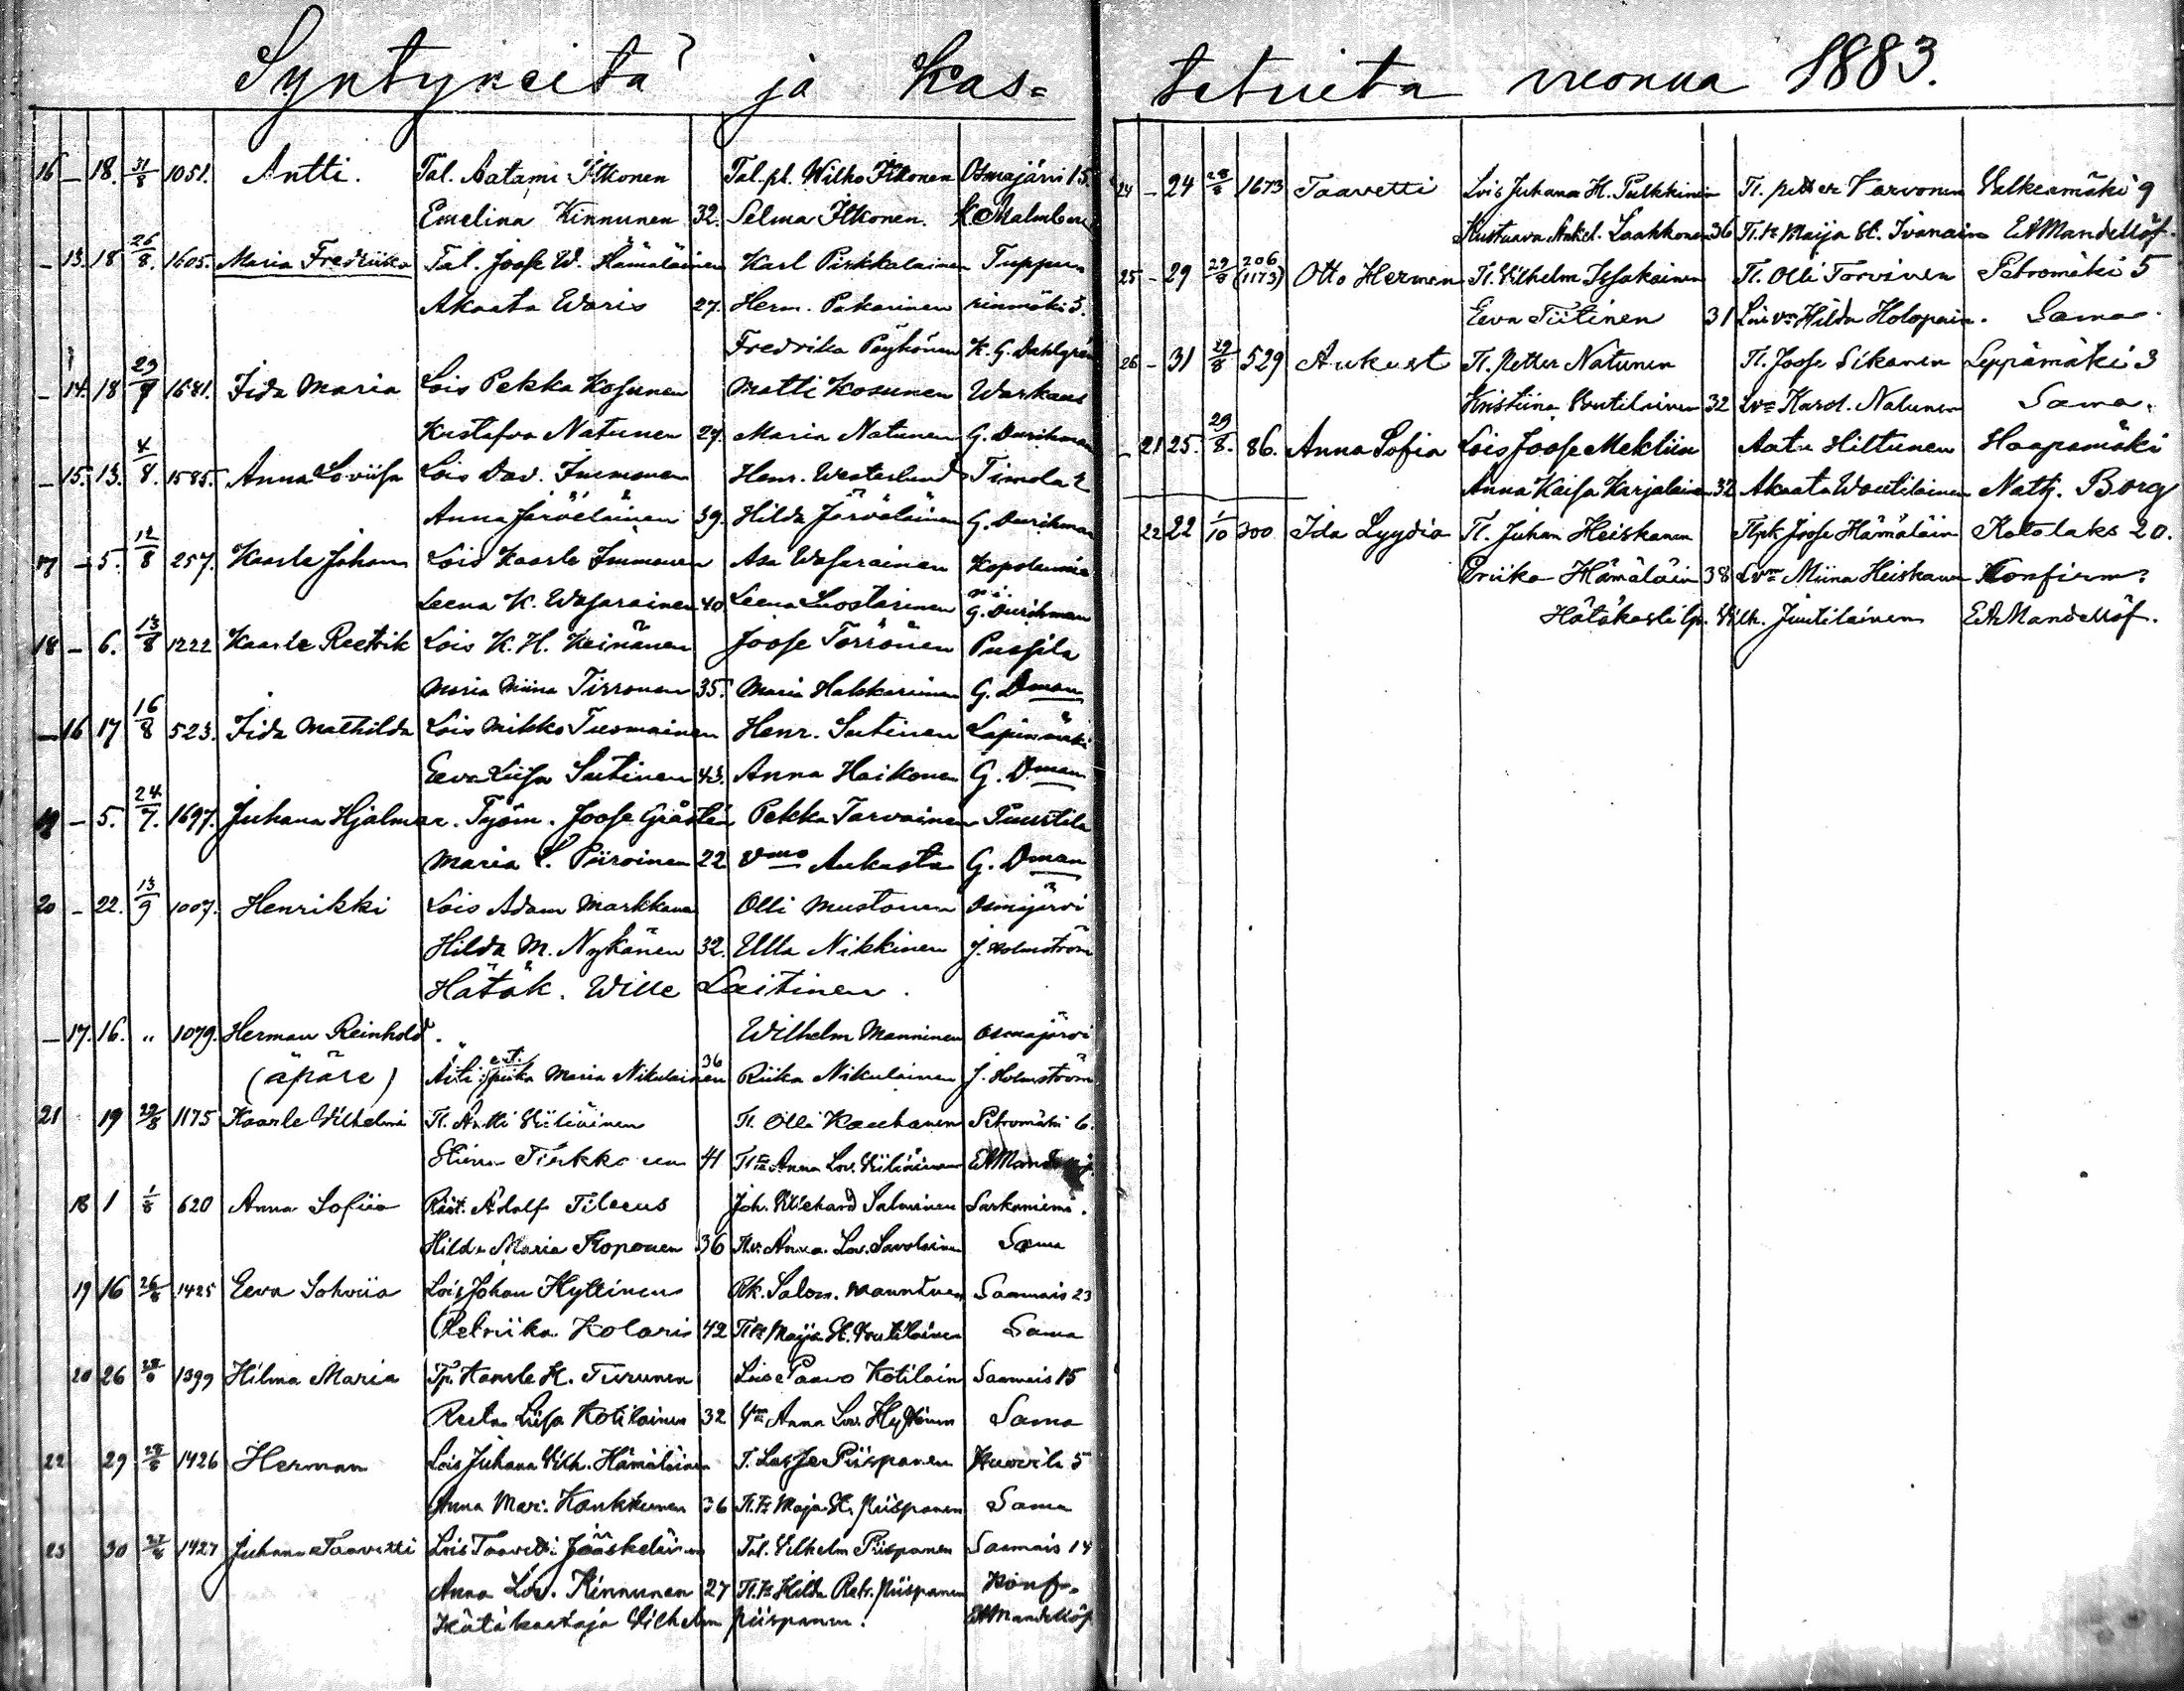 Syntyneitä ja Kas=
16 - 18. 31/8 1051. Antti. Tal. Aatami Itkonen Tal.pl. Wilho Itkonen Osmajärvi 15.
Emelina Kinnunen 32. Selma Itkonen. K Malmberg
- 13. 18 26/8. 1605. Maria Fredriika Tal. Joose W. Hämäläinen Karl Pirkkalainen Tuppu
Akaata Waris 27. Herm. Pakarinen rinmäki 3.
Fredrika Pöyhönen K. G. Dahlgrén
- 14. 18 1681. Iida Maria Lois Pekka Kosunen Matti Kosunen Warkaus
Kustafva Natunen 27. Maria Natunen G. Durchman
- 15. 13. 4/8. 1585. Anna Loviisa Lois Dav. Immonen Henr. Westerlund Timola 2
Anna Järveläinen 39. Hilda Järveläinen G. Durchman
17 - 5. 12/8 257. Kaarle Johan Lois Kaarle Immonen Asa Wasarainen Kopolanniemi
Leena K. Wasarainen 40. Leena Luostarinen G. Durchman
18 - 6. 13/8 1222 Kaarle Reetrik Lois K. H. Keinänen Joose Torrönen Pussila
Maria Miina Tirronen 35. Maria Hakkarainen G. Dman
- 16 17 16/8 523. Iida Mathilda Lois Mikko Tuomainen Henr. Sutinen Lapinmäki
Eeva Liisa Sutinen 43. Anna Haikonen G. Dman
19 - 5. 24/7. 1697. Juhana Hjalmar. Työm. Joose Gråsten Pekka Tarvainen Puurtila
Maria L. Piiroinen 22 Vmo Aukusta G. Dman
20 - 22. 13/9 1007. Henrikki Lois Adam Markkanen Olli Mustonen Osmajärvi
Hilda M. Nykänen 32. Ulla Nikkinen J. Holmström
Hätäk. Wille Laitinen.
- 17. 16. " 1079. Herman Reinhold. Wilhelm Manninen Osmajärvi
(äpäre) Äiti: Maria Nikulainen 36 Riika Nikulainen J. Holmström
21 19 29/8 1175 Kaarle Vilhelmi Tl. Antti Väliäinen Tl. Olli Kauhanen Petromäki 6.
Stiina Tirkkonen 41 Anna Lov. Väliäinen EAMandellöf
18 1 1/8 620 Anna Sofiia Räät. Adolf Tileeus Joh. Richard Salminen Sarkaniemi.
Hilda Maria Koponen 36 Anna Lov. Savolainen Sama
19 16 26/8 1425 Eeva Sohviia Lois Johan Hyttinen Rk. Salom. Maunanen Saamais 23
Retriika Kolari 42 Tl.v Maija St. Voutilainen Sama
20 26 28/8 1399 Hilma Maria Tp. Kaarle H. Turunen Lois Paavo Kotilain Saamais 15
Reeta Liisa Kotilainen 32 Vm Anna Lov. Hyttinen Sama
22 29 28/8 1426 Herman Lois Juhana Vilh. Hämäläinen T. Lasse Piispanen Kuvvila 5
Anna Mari. Kankkunen 36 Tl.v Maja St. Piispanen Sama
23 30 1427 Juhana Taavetti Lois Taavetti Jääskeläinen Tal. Vilhelm Piispanen Saamais 14
Anna Lov. Kinnunen 27 Tl.v Hilda Retr. Piispanen Konf.
Hätäkastaja Vilhelm Piispanen. EAMandellöf
tetuita vuonna 1883.
24 - 24 28/8 1673 Taavetti Lois Juhana H. Pulkkinen Tl. Petter Karvonen Valkeamäki 9
Kustaava Laakkonen 36 Tl.v Maija St. Ivanain EAMandellöf.
25 - 29 29/8 206 (1173) Otto Herman Tl. Vilhelm Issakainen Tl. Olli Torvinen Petromäki 5
Eeva Tiitinen 31 Lois vm Hilda Holopain. Sama.
26 - 31 29/8 529 Aukust Tl. Petter Natunen Tl. Joose Sikanen Leppämäki 3
Kristiina Voutilainen 32 Lvm Karol. Natunen Sama.
- 21 25. 29/8. 86. Anna Sofia Lois Joose Mekliin Aatu Hiltunen Haapamäki
Anna Kaisa Karjalainen 32 Akaata Woutilainen Nath. Borg
22 22 1/10 300 Ida Lyydia Tl. Juhan Heiskanen Joose Hämäläin Kotolaks 20.
Eriika Hämäläin 38 Lvm Miina Heiskanen Konfirm:
Hätäkasti lp. Vilh. Juutilainen EAMandellöf.